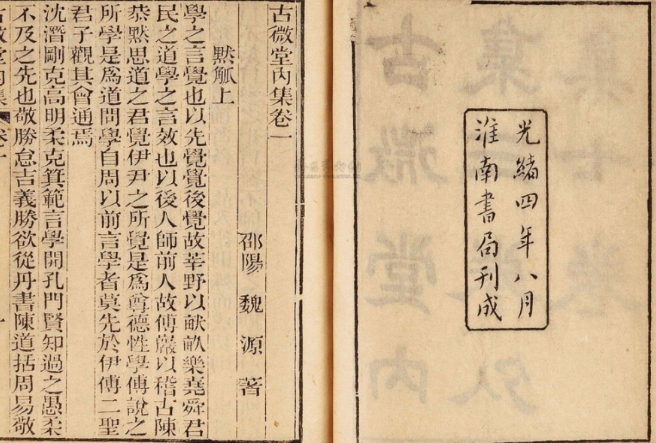 光緒四年八月
淮南書局刊成
古微堂內集卷一
邵陽 魏源 著
默觚上
學之言覺也以先覺覺後覺故莘野以畎畝樂堯舜君
民之道學之言效也以後人師前人故傅巖以稽古陳
恭默思道之君覺伊尹之所覺是爲尊德性學傅說之
所學是爲道問學自周以前言學者莫先於伊傅二聖
君子觀其會通焉
沈潛剛克高明柔克箕範言學開孔門賢知過之愚柔
不及之先也敬勝怠吉義勝欲從丹書陳道括周易敬